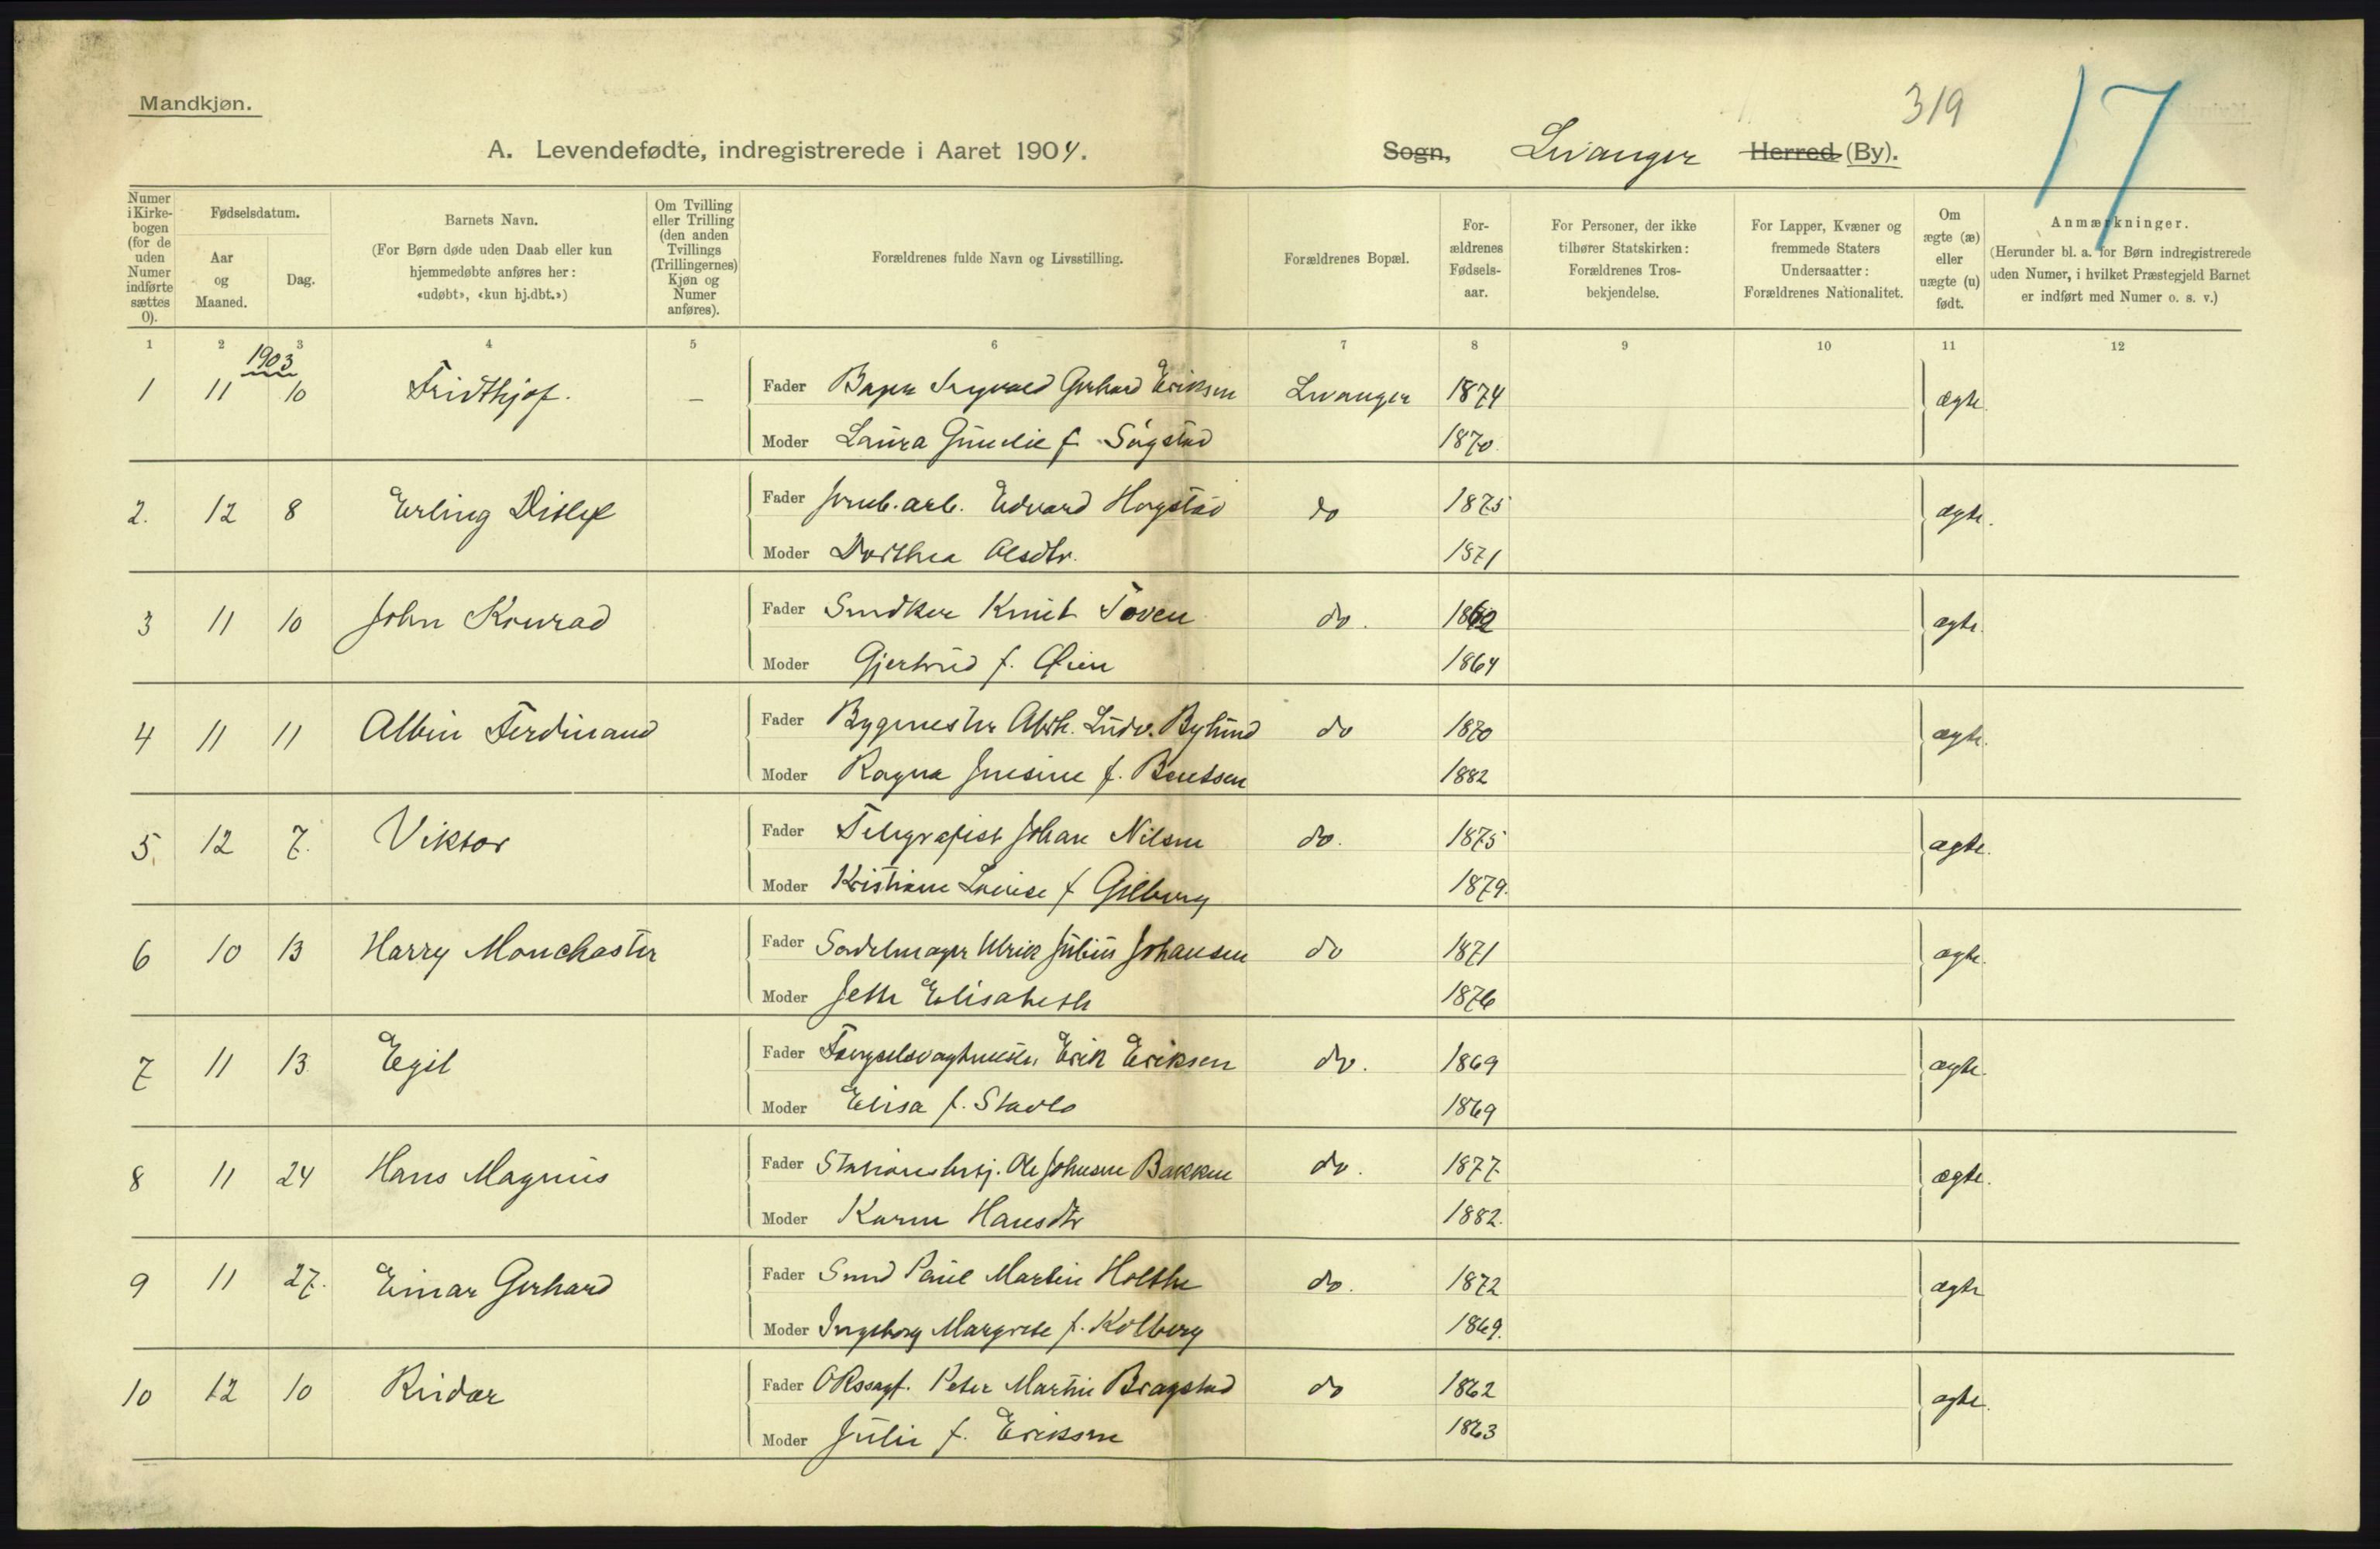 Mandkjøn.
319
17
A. Levendefødte, indregistrerede i Aaret 1904.
Sogn, Levanger Herred (By).
Numer i Kirkebogen (for de uden Numer indførte sættes 0).
Fødselsdatum.
Aar og Maaned.
Dag.
Barnets Navn.
(For Børn døde uden Daab eller kun hjemmedøbte anføres her: «udøbt», «kun hj.dbt.»)
Om Tvilling eller Trilling (den anden Tvillings (Trillingernes) Kjøn og Numer anføres).
Forældrenes fulde Navn og Livsstilling.
Forældrenes Bopæl.
Forældrenes Fødselsaar.
For Personer, der ikke tilhører Statskirken: Forældrenes Trosbekjendelse.
For Lapper, Kvæner og fremmede Staters Undersaatter: Forældrenes Nationalitet.
Om ægte (æ) eller uægte (u) født.
Anmærkninger.
(Herunder bl. a. for Børn indregistrerede uden Numer, i hvilket Præstegjeld Barnet er indført med Numer o. s. v.)
1 2 3 4 5 6 7 8 9 10 11 12
1903
1 11 10 Fridthjof. — Fader Bager Ingvald Gerhard Eriksen Levanger 1874 ægte
Moder Laura Gunelie f. Søgstad 1870
2. 12 8 Erling Dislef Fader Jernb.arb. Edvard Hogstad do 1875 ægte.
Moder Dorthea Olsdtr. 1871
3 11 10 John Konrad Fader Snedker Knut Toven do. 1862 ægte.
Moder Gjertrud f. Øien 1864
4 11 11 Albin Ferdinand Fader Bygmester Abrh. Ludv. Bylund do 1870 ægte.
Moder Ragna Jensine f. Bentsen 1882
5. 12 7. Viktor Fader Telegrafist Johan Nilsen do. 1875 ægte.
Moder Kristiane Lovise f Gilberg 1879.
6 10 13 Harry Manchaster Fader Sadelmager Ulrik Julius Johansen do 1871 ægte.
Moder Jette Elisabeth 1876
7 11 13 Egil Fader Fængselsvagtmester Erik Eriksen do. 1869 ægte.
Moder Elisa f. Stavlo 1869
8 11 24 Hans Magnus Fader Stationsbetj. Ole Johnsen Bakken do. 1877 ægte.
Moder Karen Hansdtr 1882.
9 11 27. Einar Gerhard Fader Smed Paul Martin Holthe do. 1872 ægte
Moder Ingeborg Margrete f. Kolberg 1869.
10 12 10 Reidar Fader O.Rssagf. Peter Martin Bragstad do 1862 ægte.
Moder Julie f. Eriksen 1863